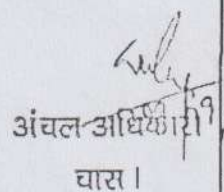 अंचल अधिकारी
चास।